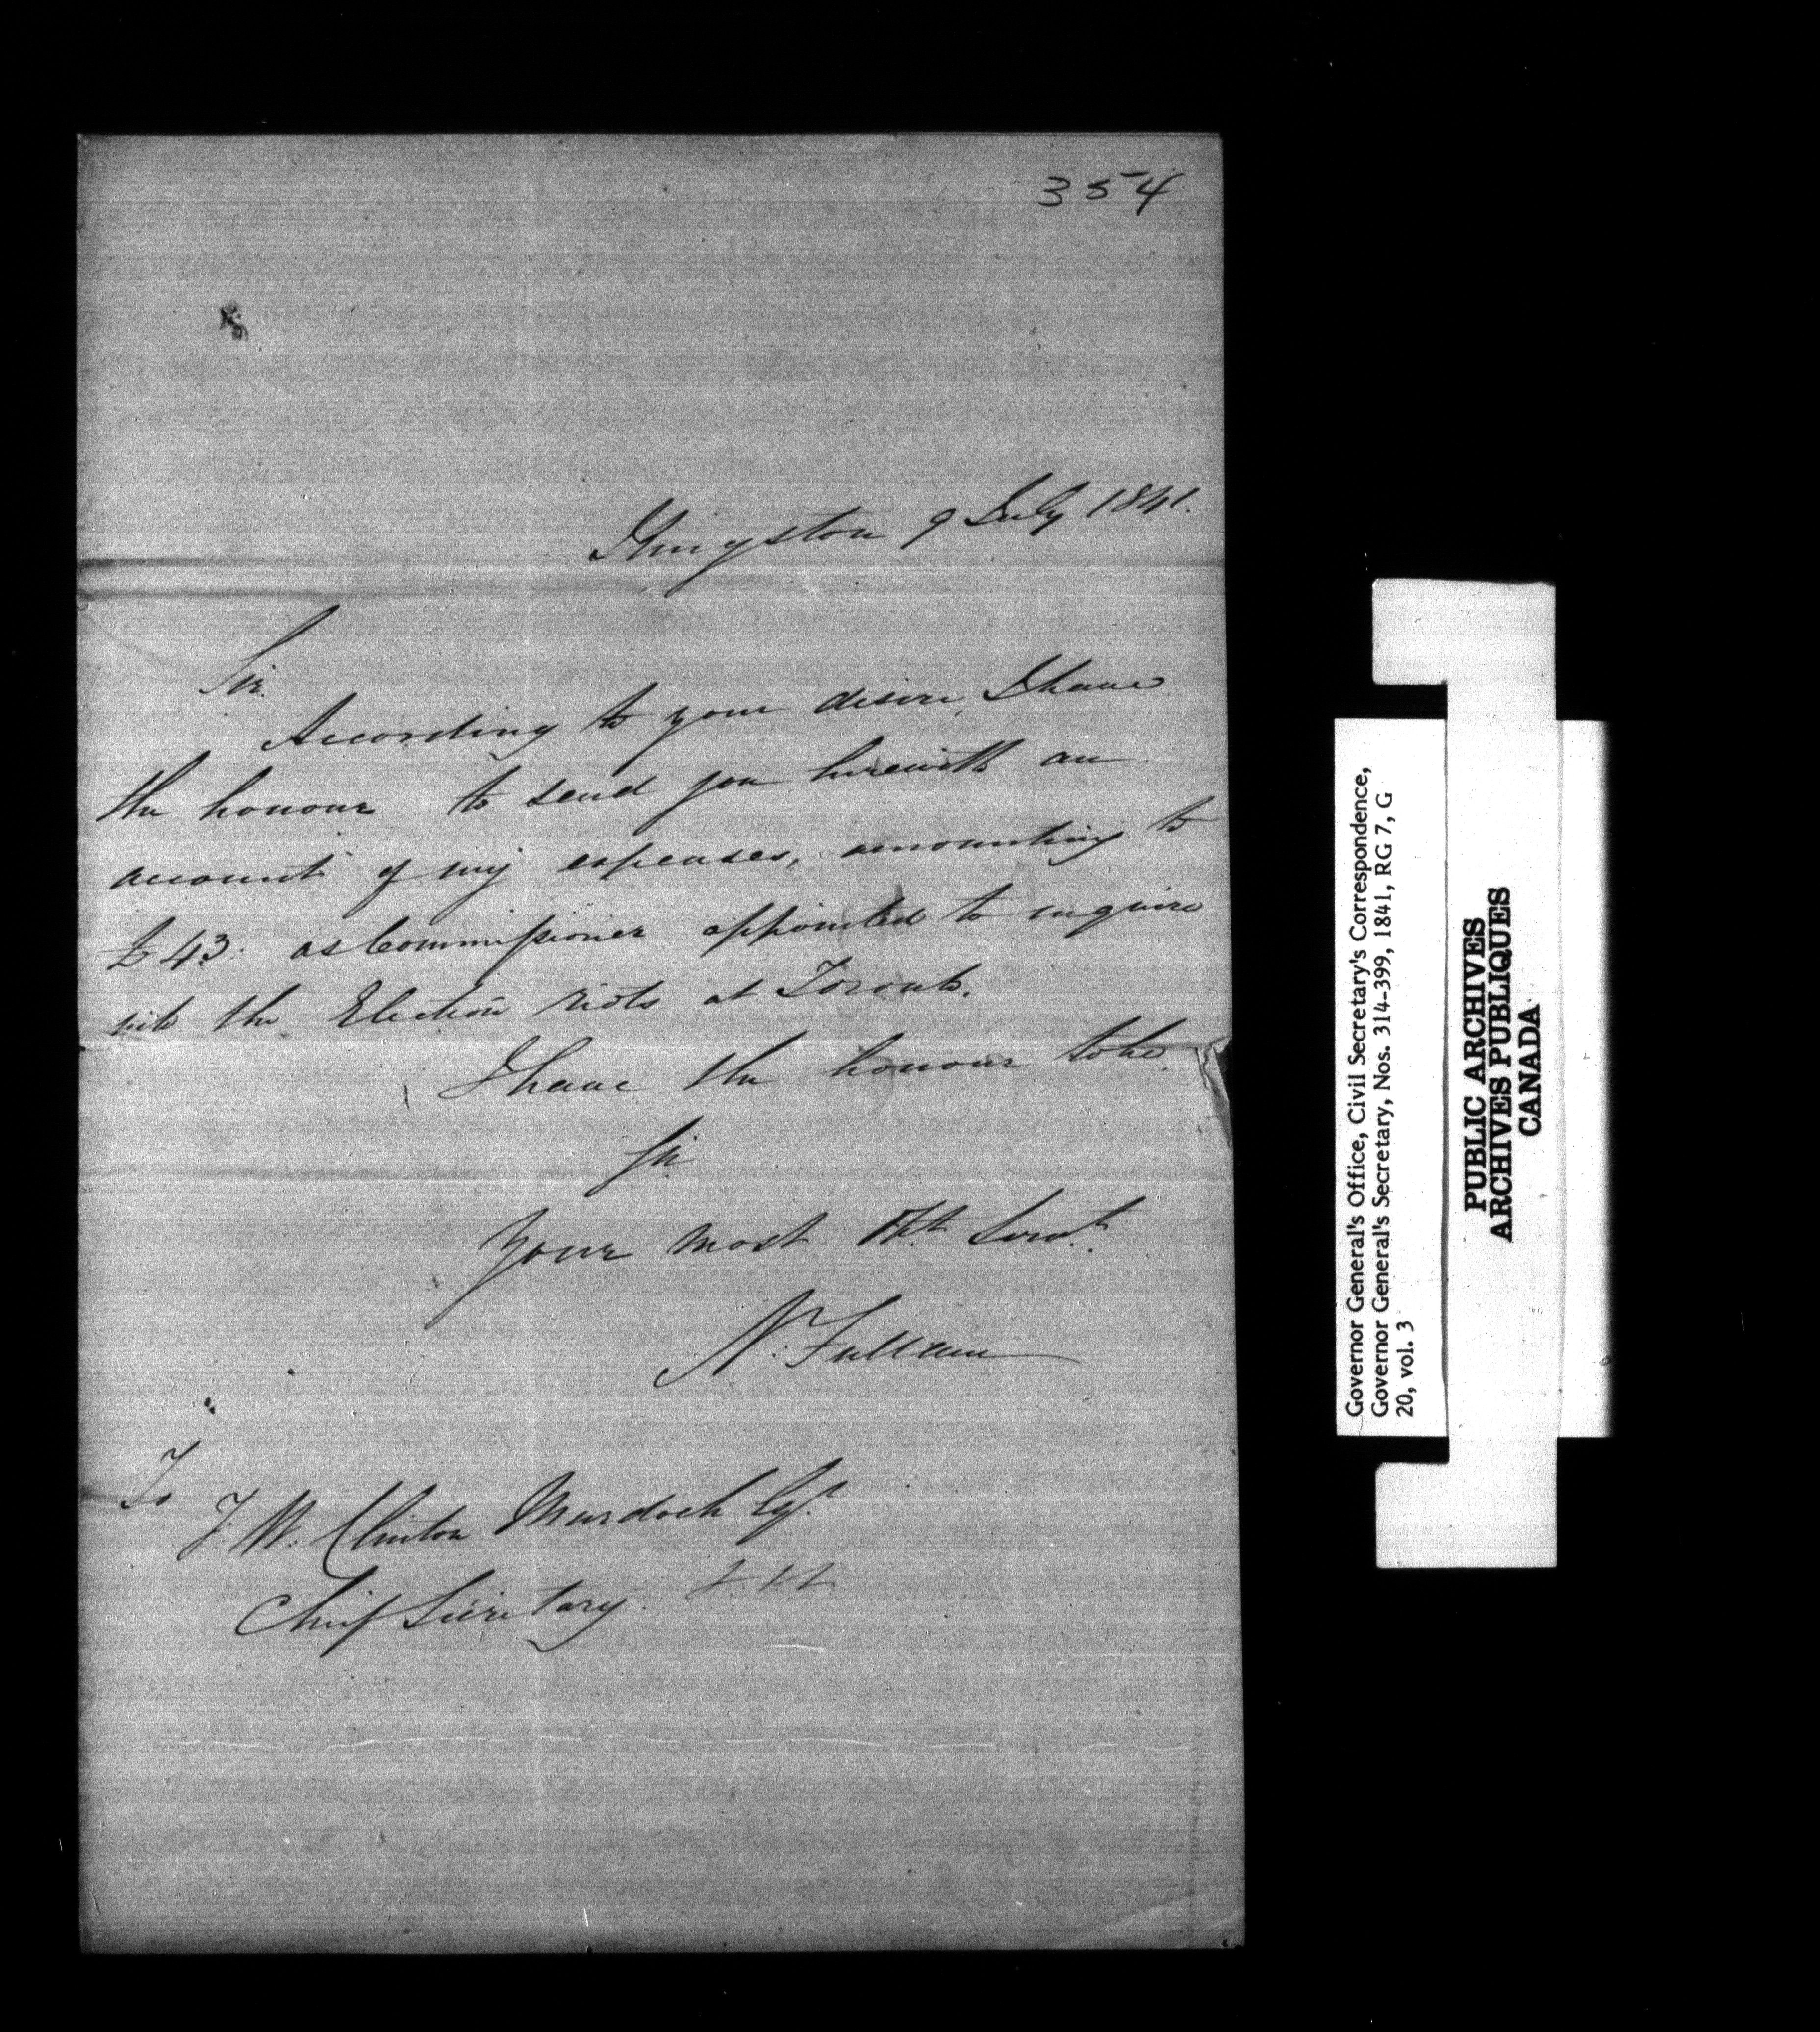 354
Kingston 9 July 1841.
Sir.
According to your desire, I have
the honour to send you herewith an
account of my expenses, amounting to
£43. as Commissioner appointed to inquire
into the Election riots at Toronto.
I have the honour to be,
Sir
Your most Obt. Servt.
N. Fullam
To
T. W. Clinton Murdoch Esqr.
Chief Secretary
Governor General's Office, Civil Secretary's Correspondence,
Governor General's Secretary, Nos. 314-399, 1841, RG 7, G
20, vol. 3
PUBLIC ARCHIVES
ARCHIVES PUBLIQUES
CANADA